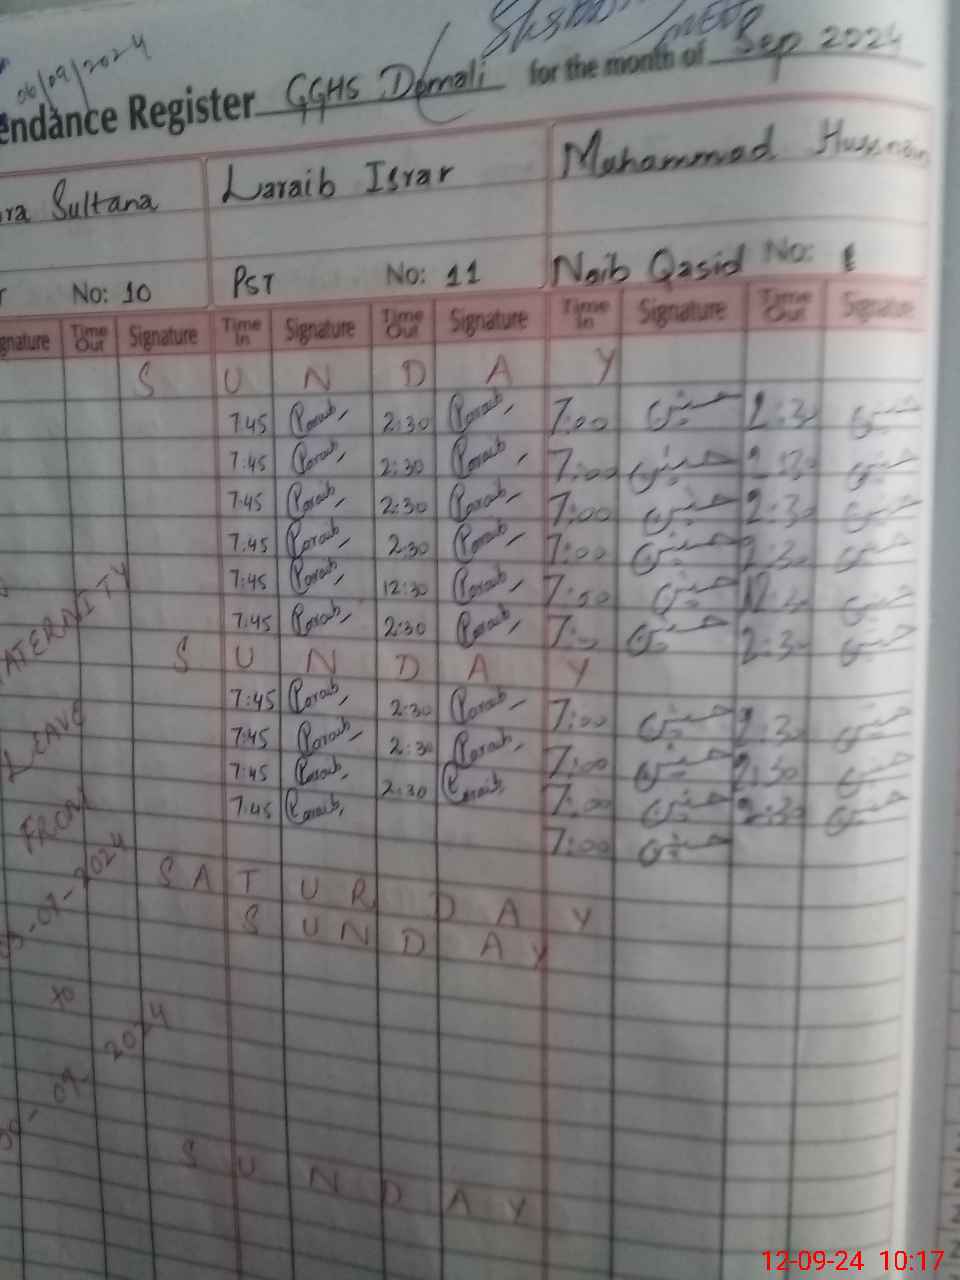 06/09/2024
endance Register GGHS Domali for the month of Sep 2024
ra Sultana Laraib Israr Muhammad Husnain
No: 10 PST No: 11 Naib Qasid No: 1
gnature Time Out Signature Time In Signature Time Out Signature Time In Signature Time Out Signature
S U N D A Y
7:45 Laraib 2:30 Laraib 7:00 حسنین 2:30 حسنین
7:45 Laraib 2:30 Laraib 7:00 حسنین 2:30 حسنین
7:45 Laraib 2:30 Laraib 7:00 حسنین 2:30 حسنین
7:45 Laraib 2:30 Laraib 7:00 حسنین 2:30 حسنین
7:45 Laraib 12:30 Laraib 7:00 حسنین 12:30 حسنین
7:45 Laraib 2:30 Laraib 7:00 حسنین 2:30 حسنین
S U N D A Y
7:45 Laraib 2:30 Laraib 7:00 حسنین 2:30 حسنین
7:45 Laraib 2:30 Laraib 7:00 حسنین 2:30 حسنین
7:45 Laraib 2:30 Laraib 7:00 حسنین 2:30 حسنین
7:45 Laraib 7:00 حسنین
S A T U R D A Y
S U N D A Y
ATERNITY
LEAVE
FROM
-07-2024
to
-09-2024
S U N D A Y
12-09-24 10:17